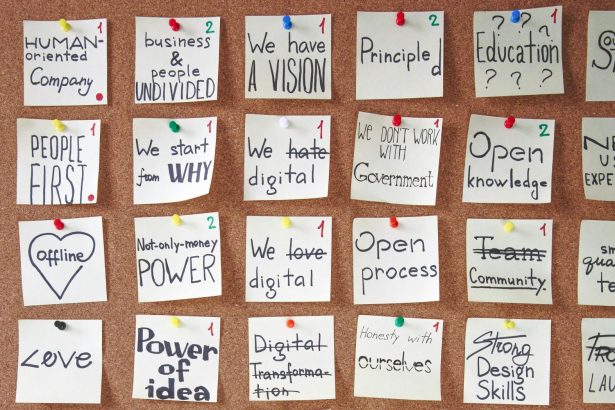 1
HUMAN-
oriented
Company
2
business
&
people
UNDIVIDED
1
We have
A VISION
2
Principled
1
Education
? ? ?
1
PEOPLE
FIRST
1
We start
from WHY
1
We hate
digital
1
WE DON'T WORK
WITH
Government
2
Open
knowledge
NE
US
EXPE
offline
2
Not-only-money
POWER
1
We love
digital
Open
process
1
Team
Community.
sm
qua
te
Love
1
Power
of
idea
Digital
Transforma-
tion
1
Honesty with
ourselves
Strong
Design
Skills
LAW